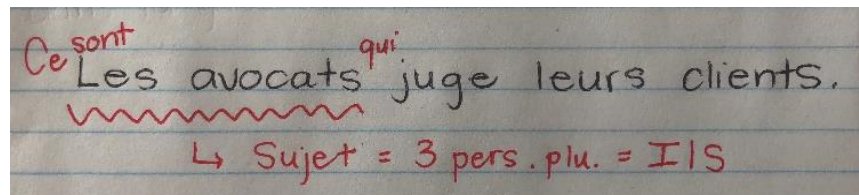 Ce sont qui
Les avocats juge leurs clients.
↳ Sujet = 3 pers. plu. = Ils